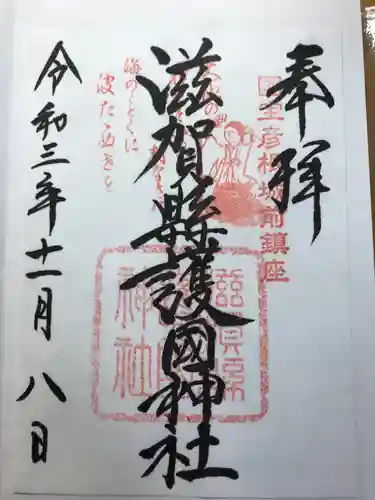 奉拝
国宝彦根城前鎮座
滋賀縣護國神社
滋賀縣
護國
神社
令和三年十一月八日